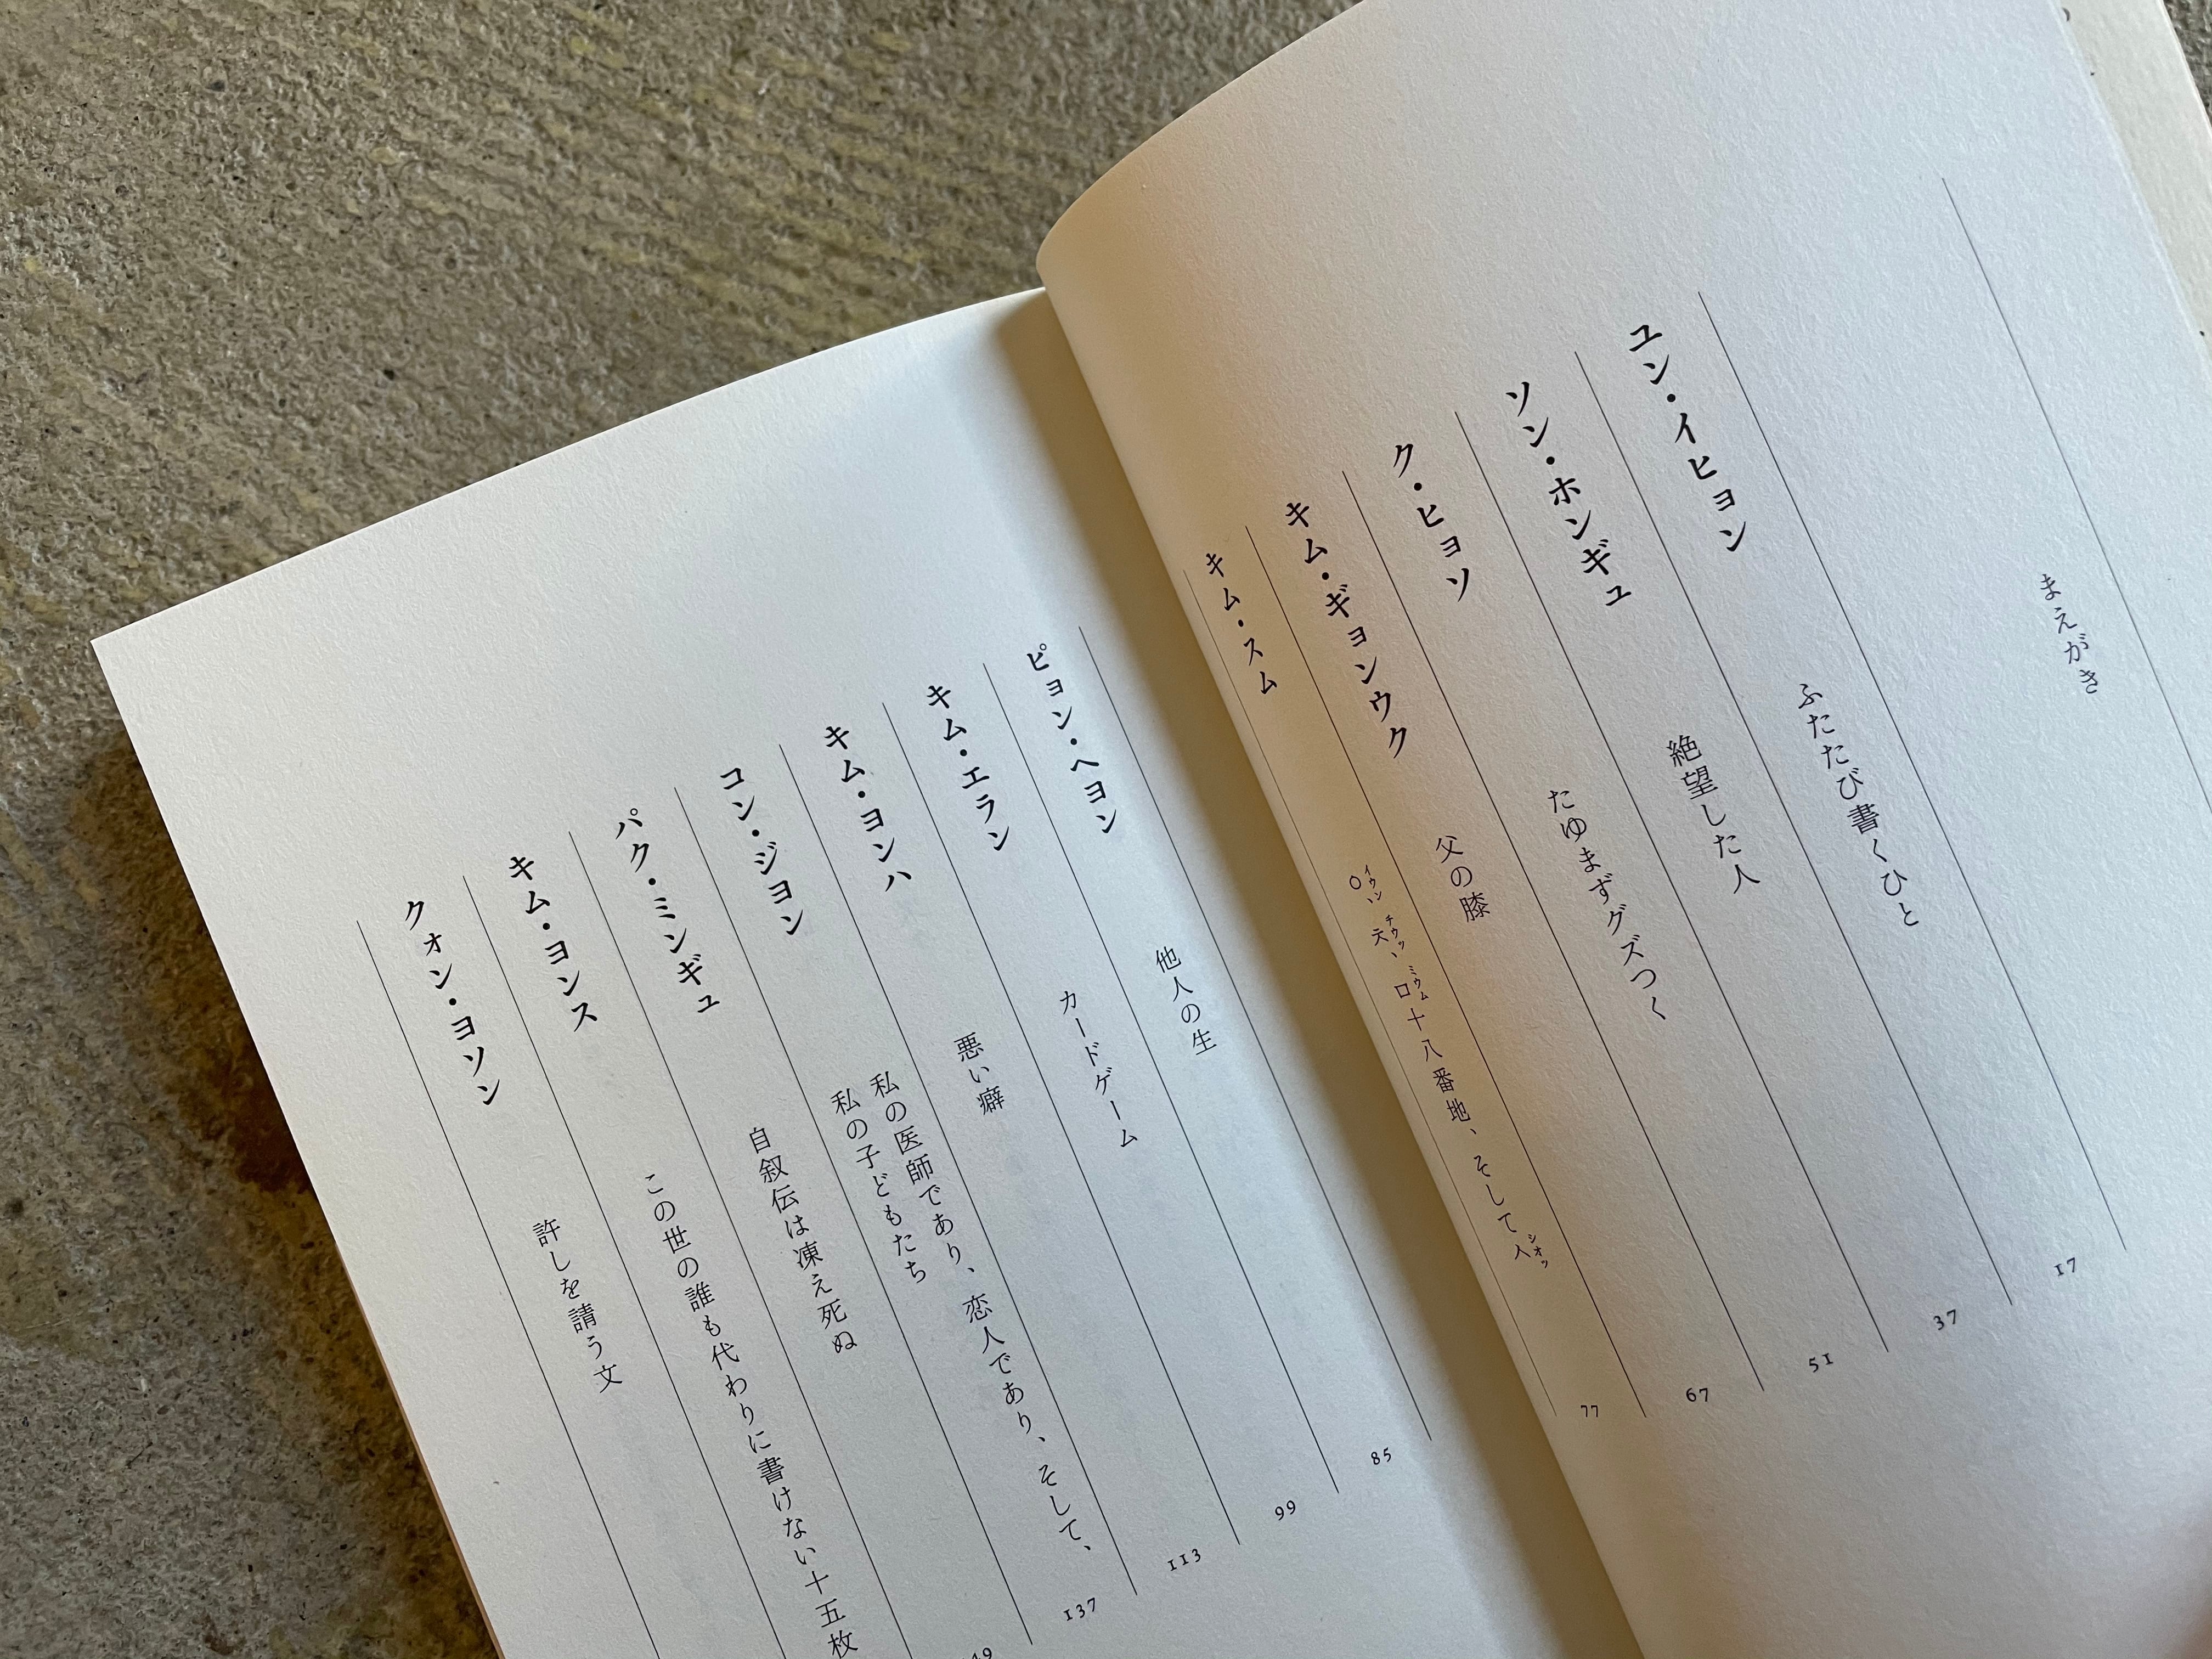 まえがき
ユン・イヒョン ふたたび書くひと 17
ソン・ホンギュ 絶望した人 37
ク・ヒョソ たゆまずグズつく 51
キム・ギョンウク 父の膝 67
キム・スム ㅇ、ㅊ、ㅁ十八番地、そしてㅅ 77
イウン チウッ ミウム シオッ
ピョン・ヘヨン 他人の生 85
キム・エラン カードゲーム 99
キム・ヨンハ 悪い癖 113
コン・ジヨン 私の医師であり、恋人であり、そして、 137
私の子どもたち
パク・ミンギュ 自叙伝は凍え死ぬ
キム・ヨンス この世の誰も代わりに書けない十五枚
クォン・ヨソン 許しを請う文